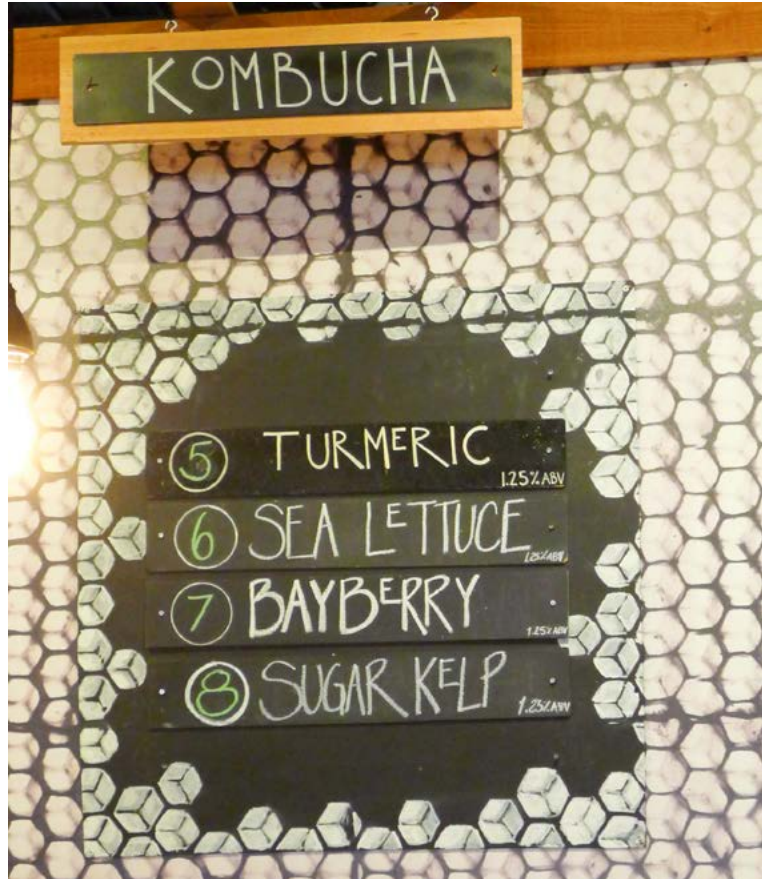 KOMBUCHA
5 TURMERIC
1.25% ABV
6 SEA LETTUCE
1.25% ABV
7 BAYBERRY
1.25% ABV
8 SUGAR KELP
1.25% ABV